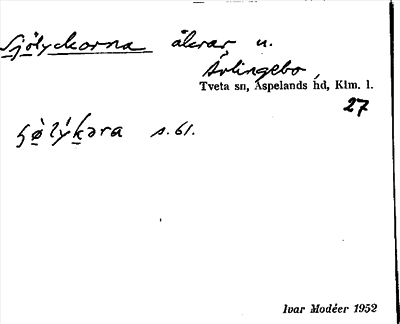 Sjölyckorna åkrar u.
Århngebo,
Tveta sn, Aspelands hd, Klm. l.
27
s. 61.
Ivar Modéer 1952